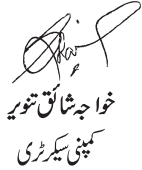 خواجہ شائق تنویر
کمپنی سیکرٹری